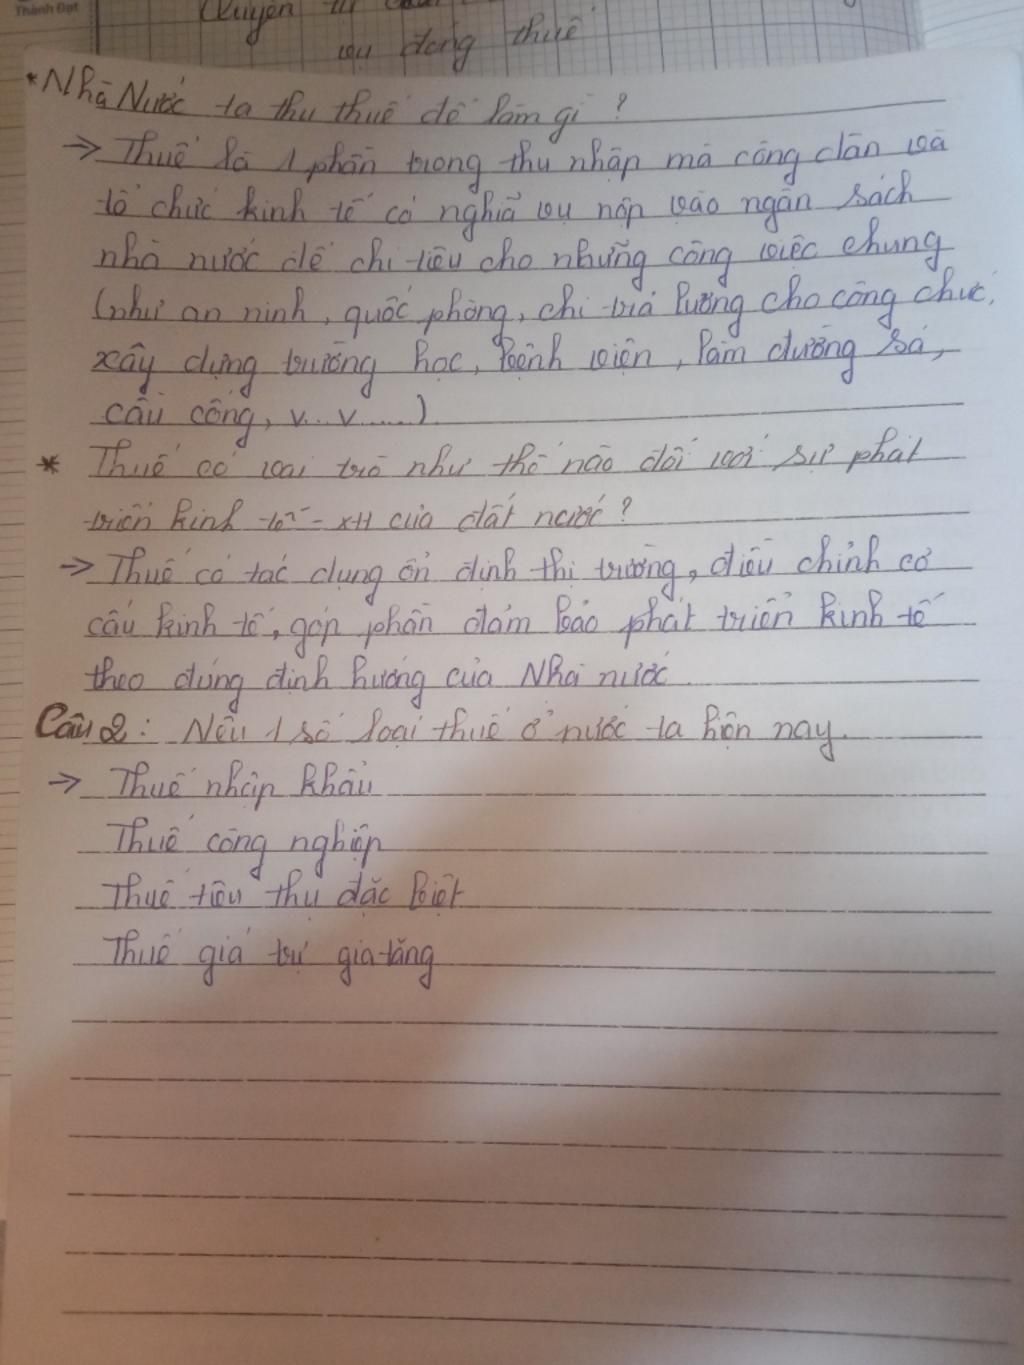 Thành Đạt
vụ đóng thuế
* Nhà Nước ta thu thuế để làm gì?
→ Thuế là 1 phần trong thu nhập mà công dân và
tổ chức kinh tế có nghĩa vụ nộp vào ngân sách
nhà nước để chi tiêu cho những công việc chung
(như an ninh, quốc phòng, chi trả lương cho công chức,
xây dựng trường học, bệnh viện, làm đường sá,
cầu cống, v...v.....)
* Thuế có vai trò như thế nào đối với sự phát
triển kinh tế - XH của đất nước?
→ Thuế có tác dụng ổn định thị trường, điều chỉnh cơ
cấu kinh tế, góp phần đảm bảo phát triển kinh tế
theo đúng định hướng của Nhà nước.
Câu 2: Nêu 1 số loại thuế ở nước ta hiện nay.
→ Thuế nhập khẩu
Thuế công nghiệp
Thuế tiêu thụ đặc biệt
Thuế giá trị gia tăng